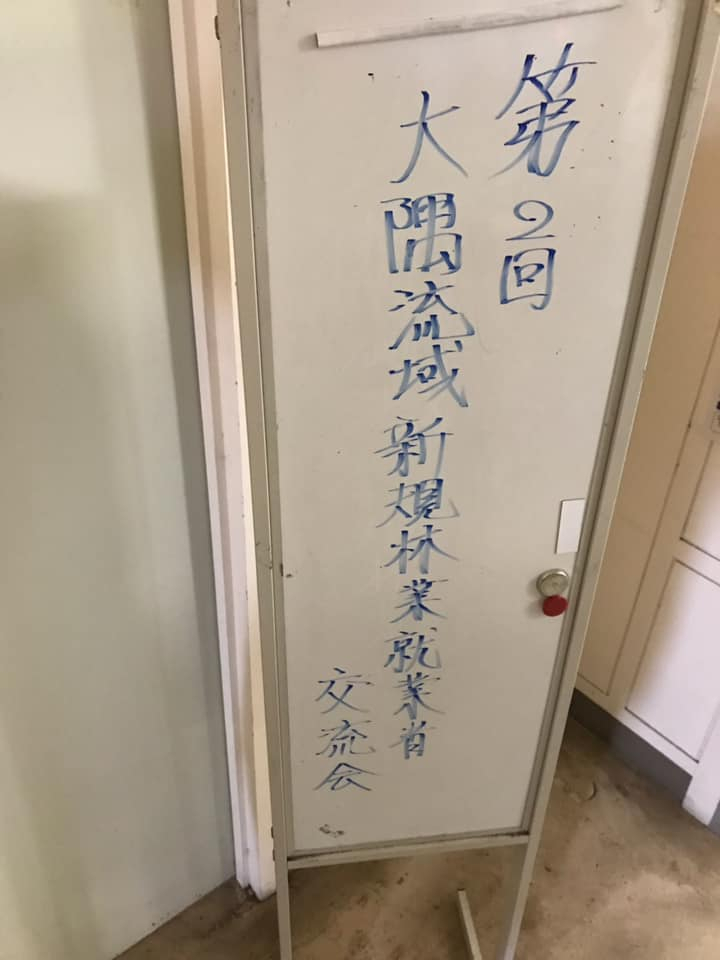 第2回
大隅流域新規林業就業者
交流会